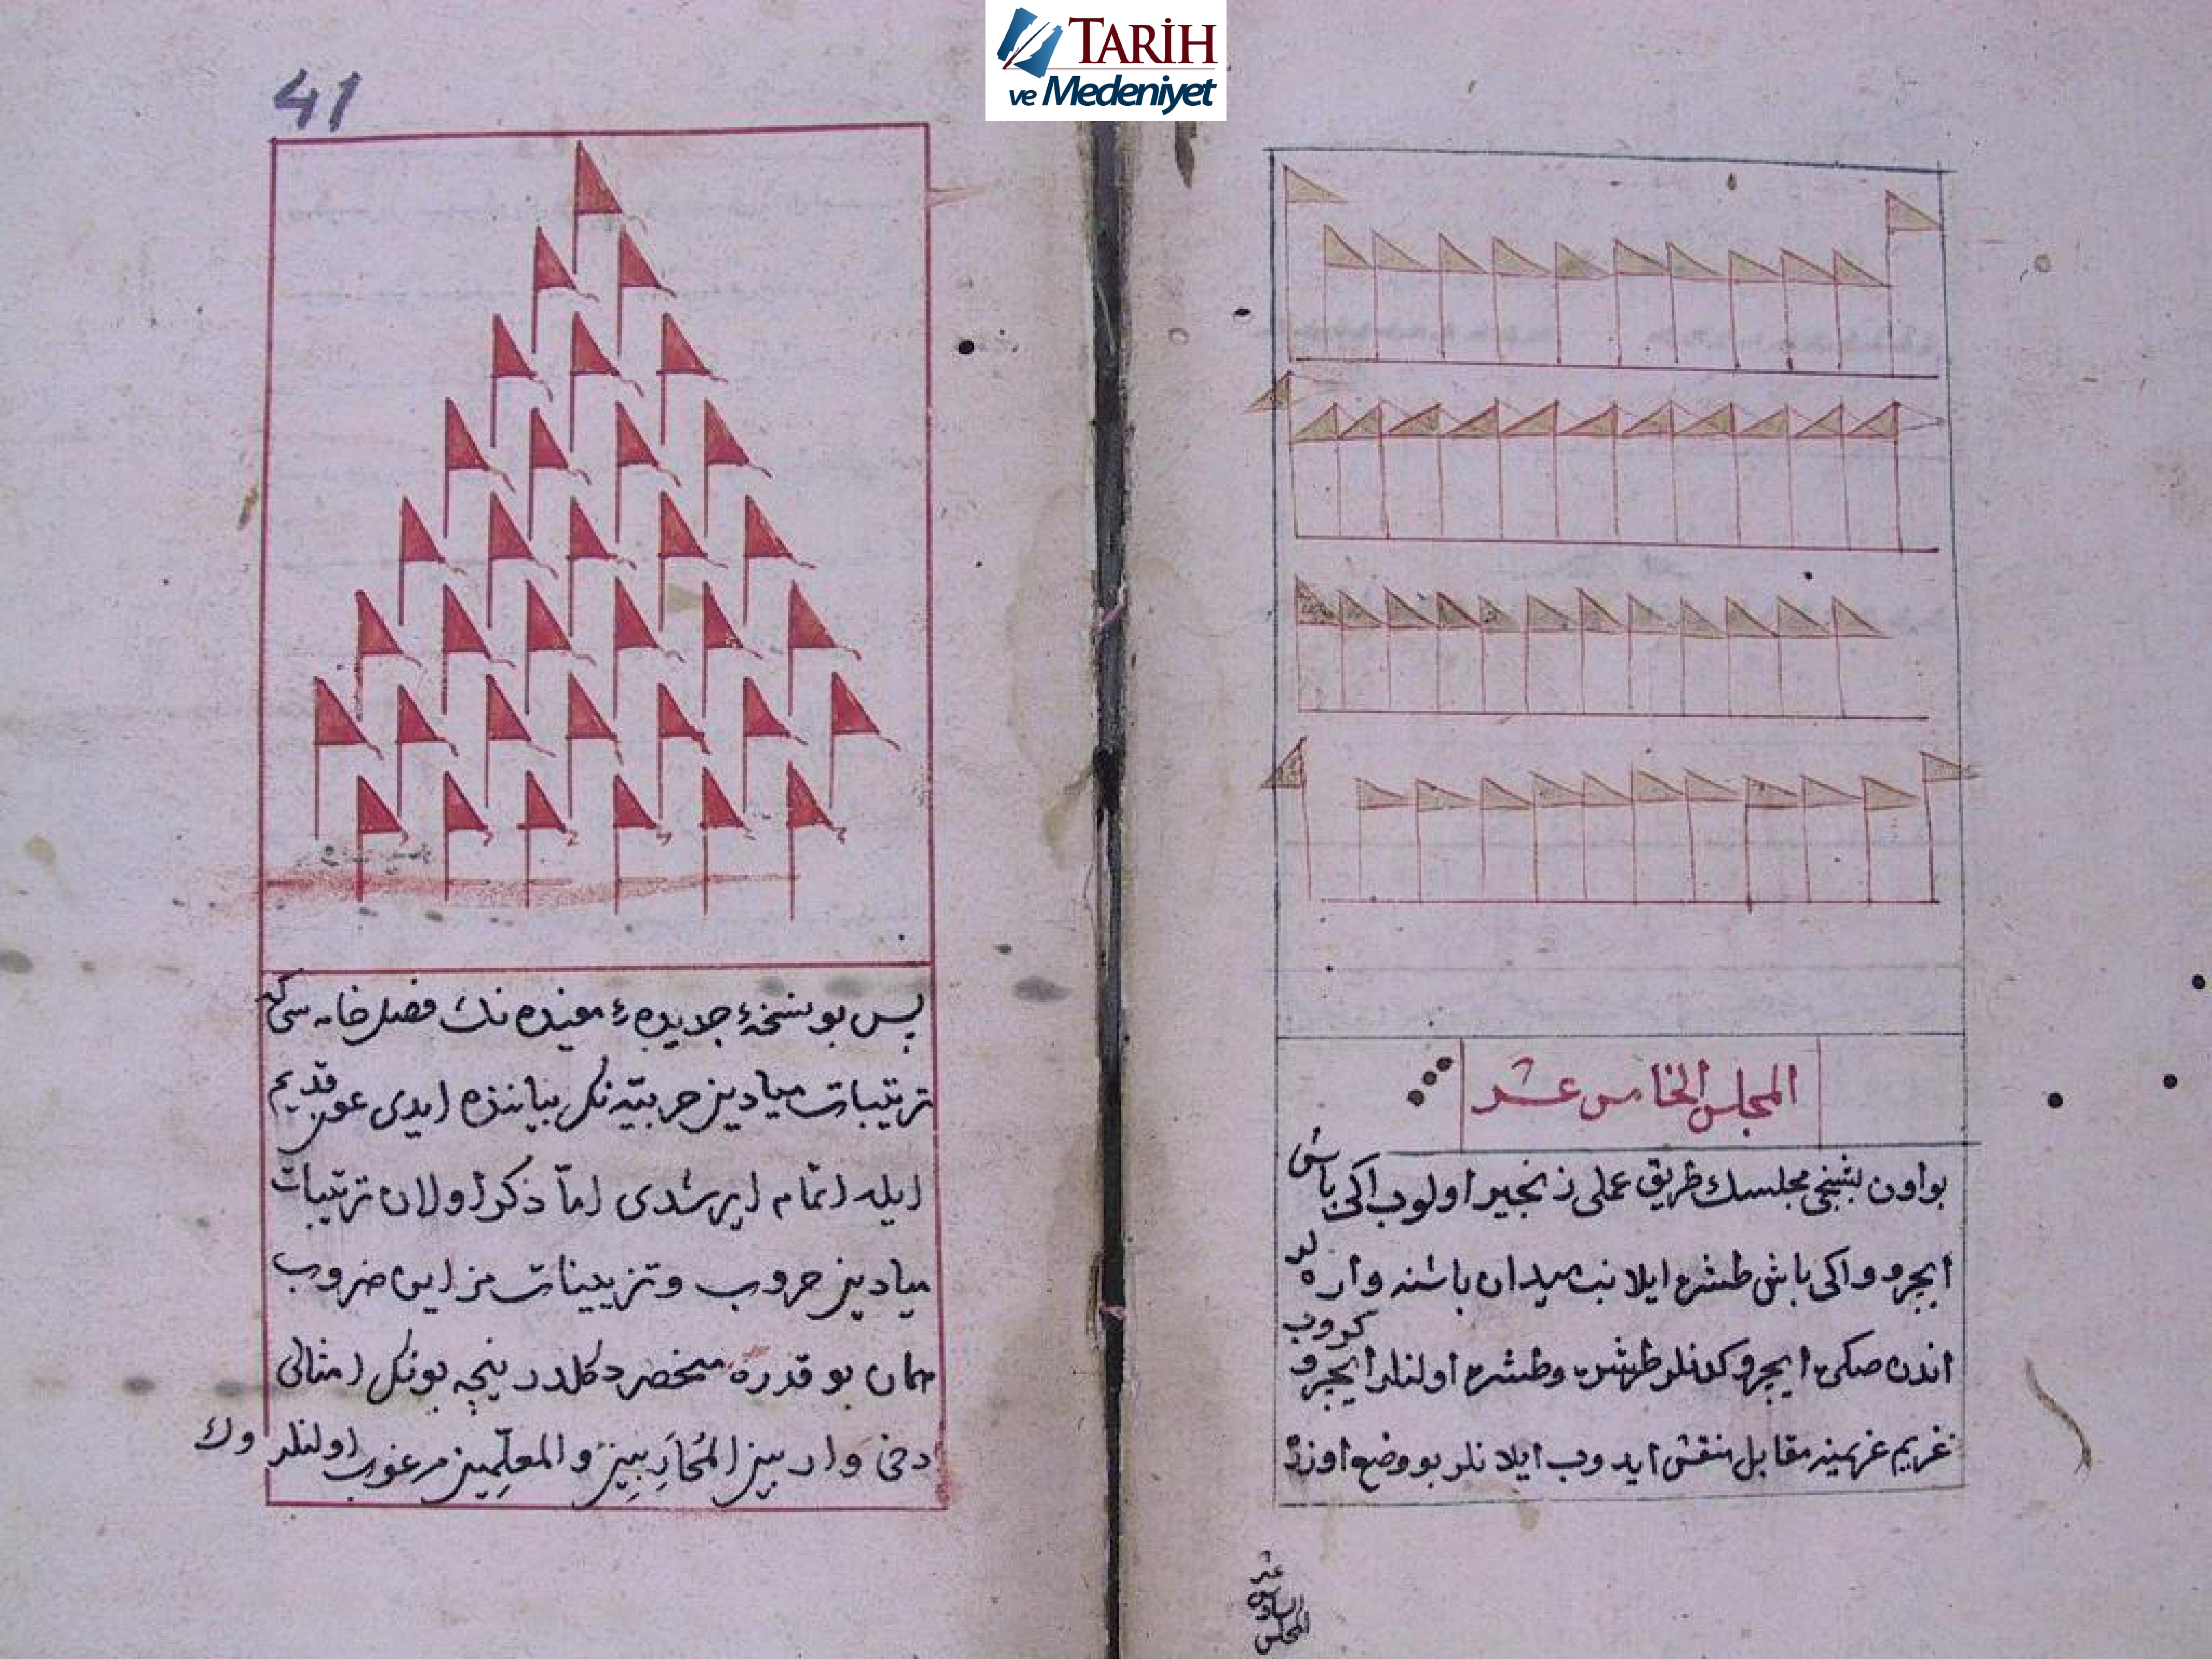 TARİH
ve Medeniyet
المجلس الخامس عشر
بو اون بشنجی مجلسك طریق عملی زنجیر اولوب ایکی باش
ایچرو و ایکی باش طشره ایلا نب میدان باشنه واره لر
اندن صکره ایچرو کدنلر طشره و طشره اولنلر ایچرو کروب
غریم غریمینه مقابل نقش ایدوب ایلانلر بو وضع اوزره
المجلس السادس عشر
41
پس بو نسخهٔ جدیدهٔ مفیده نك فصل خامسی که
ترتیبات میادین حربیّه نك بیاننده ایدی عون قدیم
ایله اتمام ایرشدی امّا ذکر اولان ترتیبات
میادین حروب و تزیینات مزاین ضروب
همان بو قدره منحصر دکلدر نیجه بونك امثالی
دخی وار بین المُحَارِبِین و المعلِّمِین مرغوب اولنلر